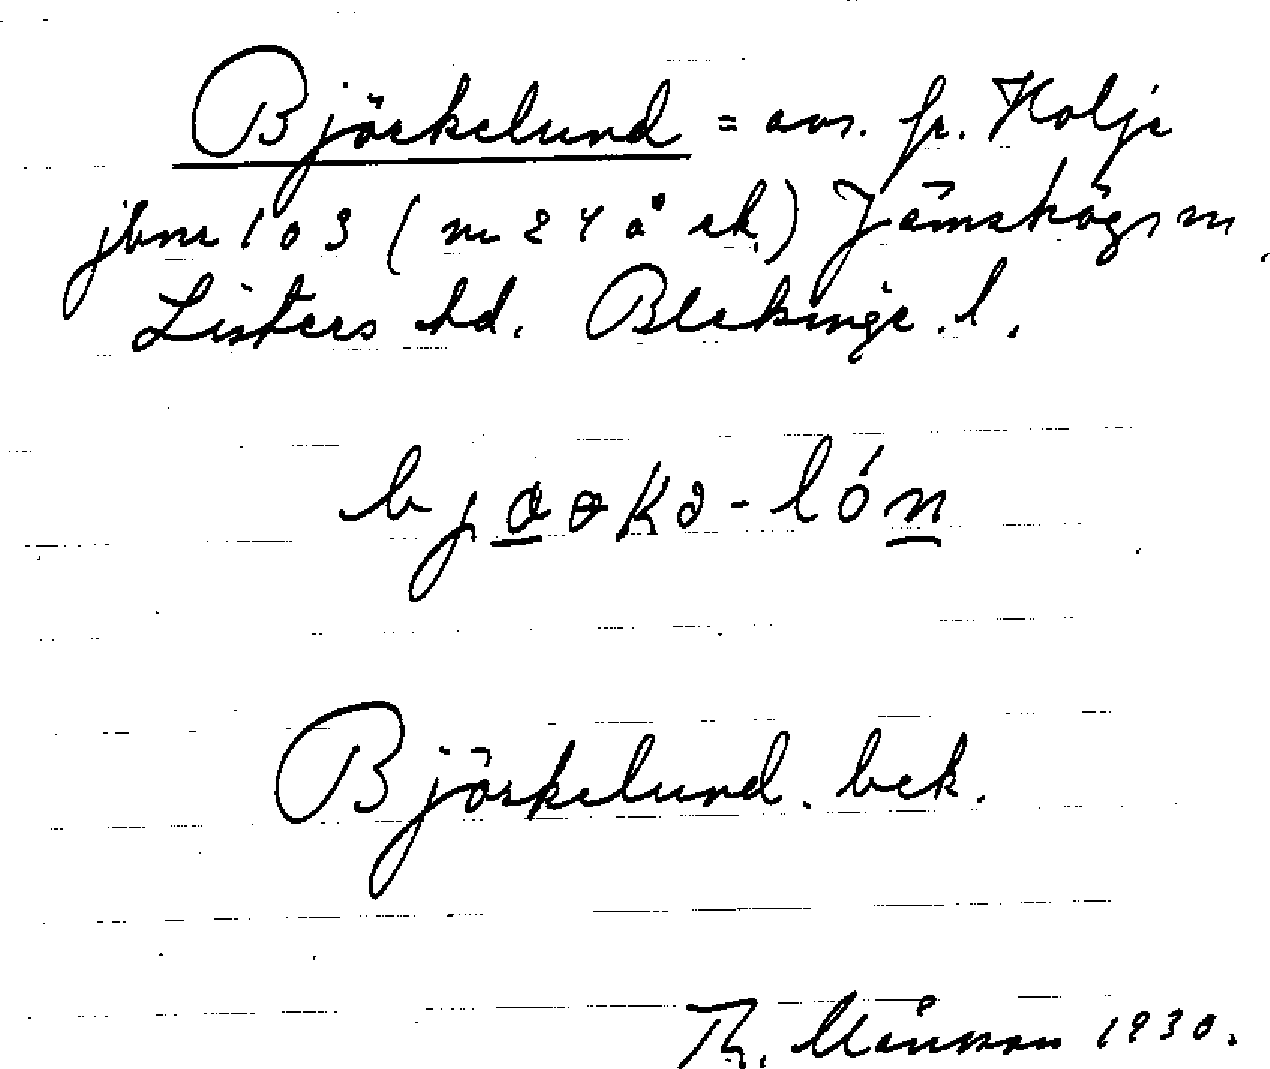 Björkelund = avs. fr. Holje
jbnr 103 (nr 24 å ek.) Jämshögs sn
Listers hd. Blekinge l.
Björkelund. bek.
Th. Månsson 1930.